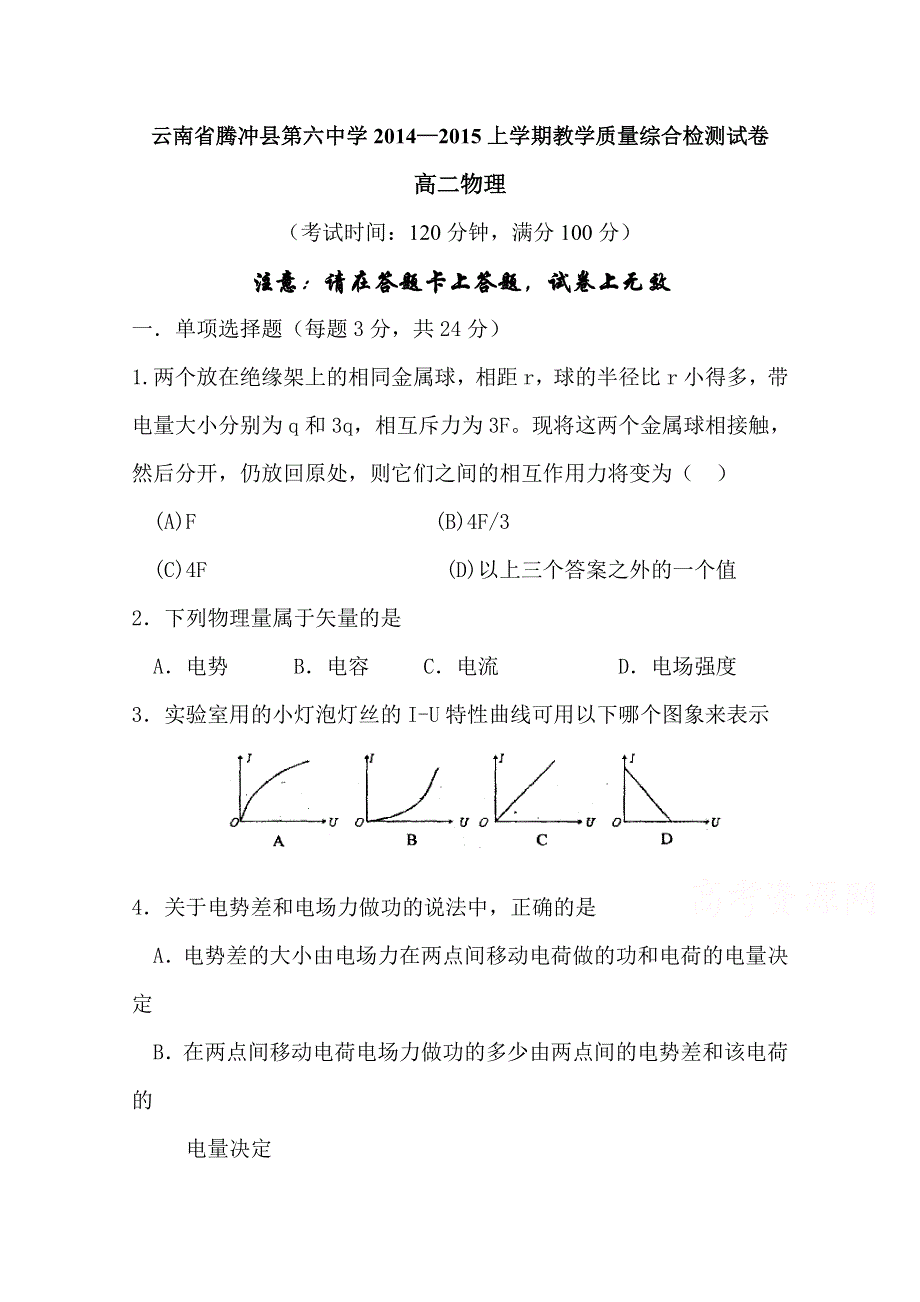 云南省腾冲县第六中学 2014—2015 上学期教学质量综合检测试卷
高二物理
（考试时间：120 分钟，满分 100 分）
注意：请在答题卡上答题，试卷上无效
一．单项选择题（每题 3 分，共 24 分）
1.两个放在绝缘架上的相同金属球，相距 r，球的半径比 r 小得多，带
电量大小分别为 q 和 3q，相互斥力为 3F。现将这两个金属球相接触，
然后分开，仍放回原处，则它们之间的相互作用力将变为（ ）
(A)F (B)4F/3
(C)4F (D)以上三个答案之外的一个值
2．下列物理量属于矢量的是
A．电势 B．电容 C．电流 D．电场强度
3．实验室用的小灯泡灯丝的 I-U 特性曲线可用以下哪个图象来表示
I I I I
O U O U O U O U
A B C D
高考资源网
4．关于电势差和电场力做功的说法中，正确的是
A．电势差的大小由电场力在两点间移动电荷做的功和电荷的电量决
定
B．在两点间移动电荷电场力做功的多少由两点间的电势差和该电荷
的
电量决定